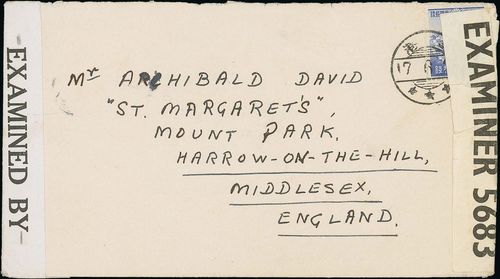 Mr ARCHIBALD DAVID
"ST. MARGARET'S",
MOUNT PARK,
HARROW-ON-THE-HILL,
MIDDLESEX,
ENGLAND.
-EXAMINED BY-
EXAMINER 5683
17